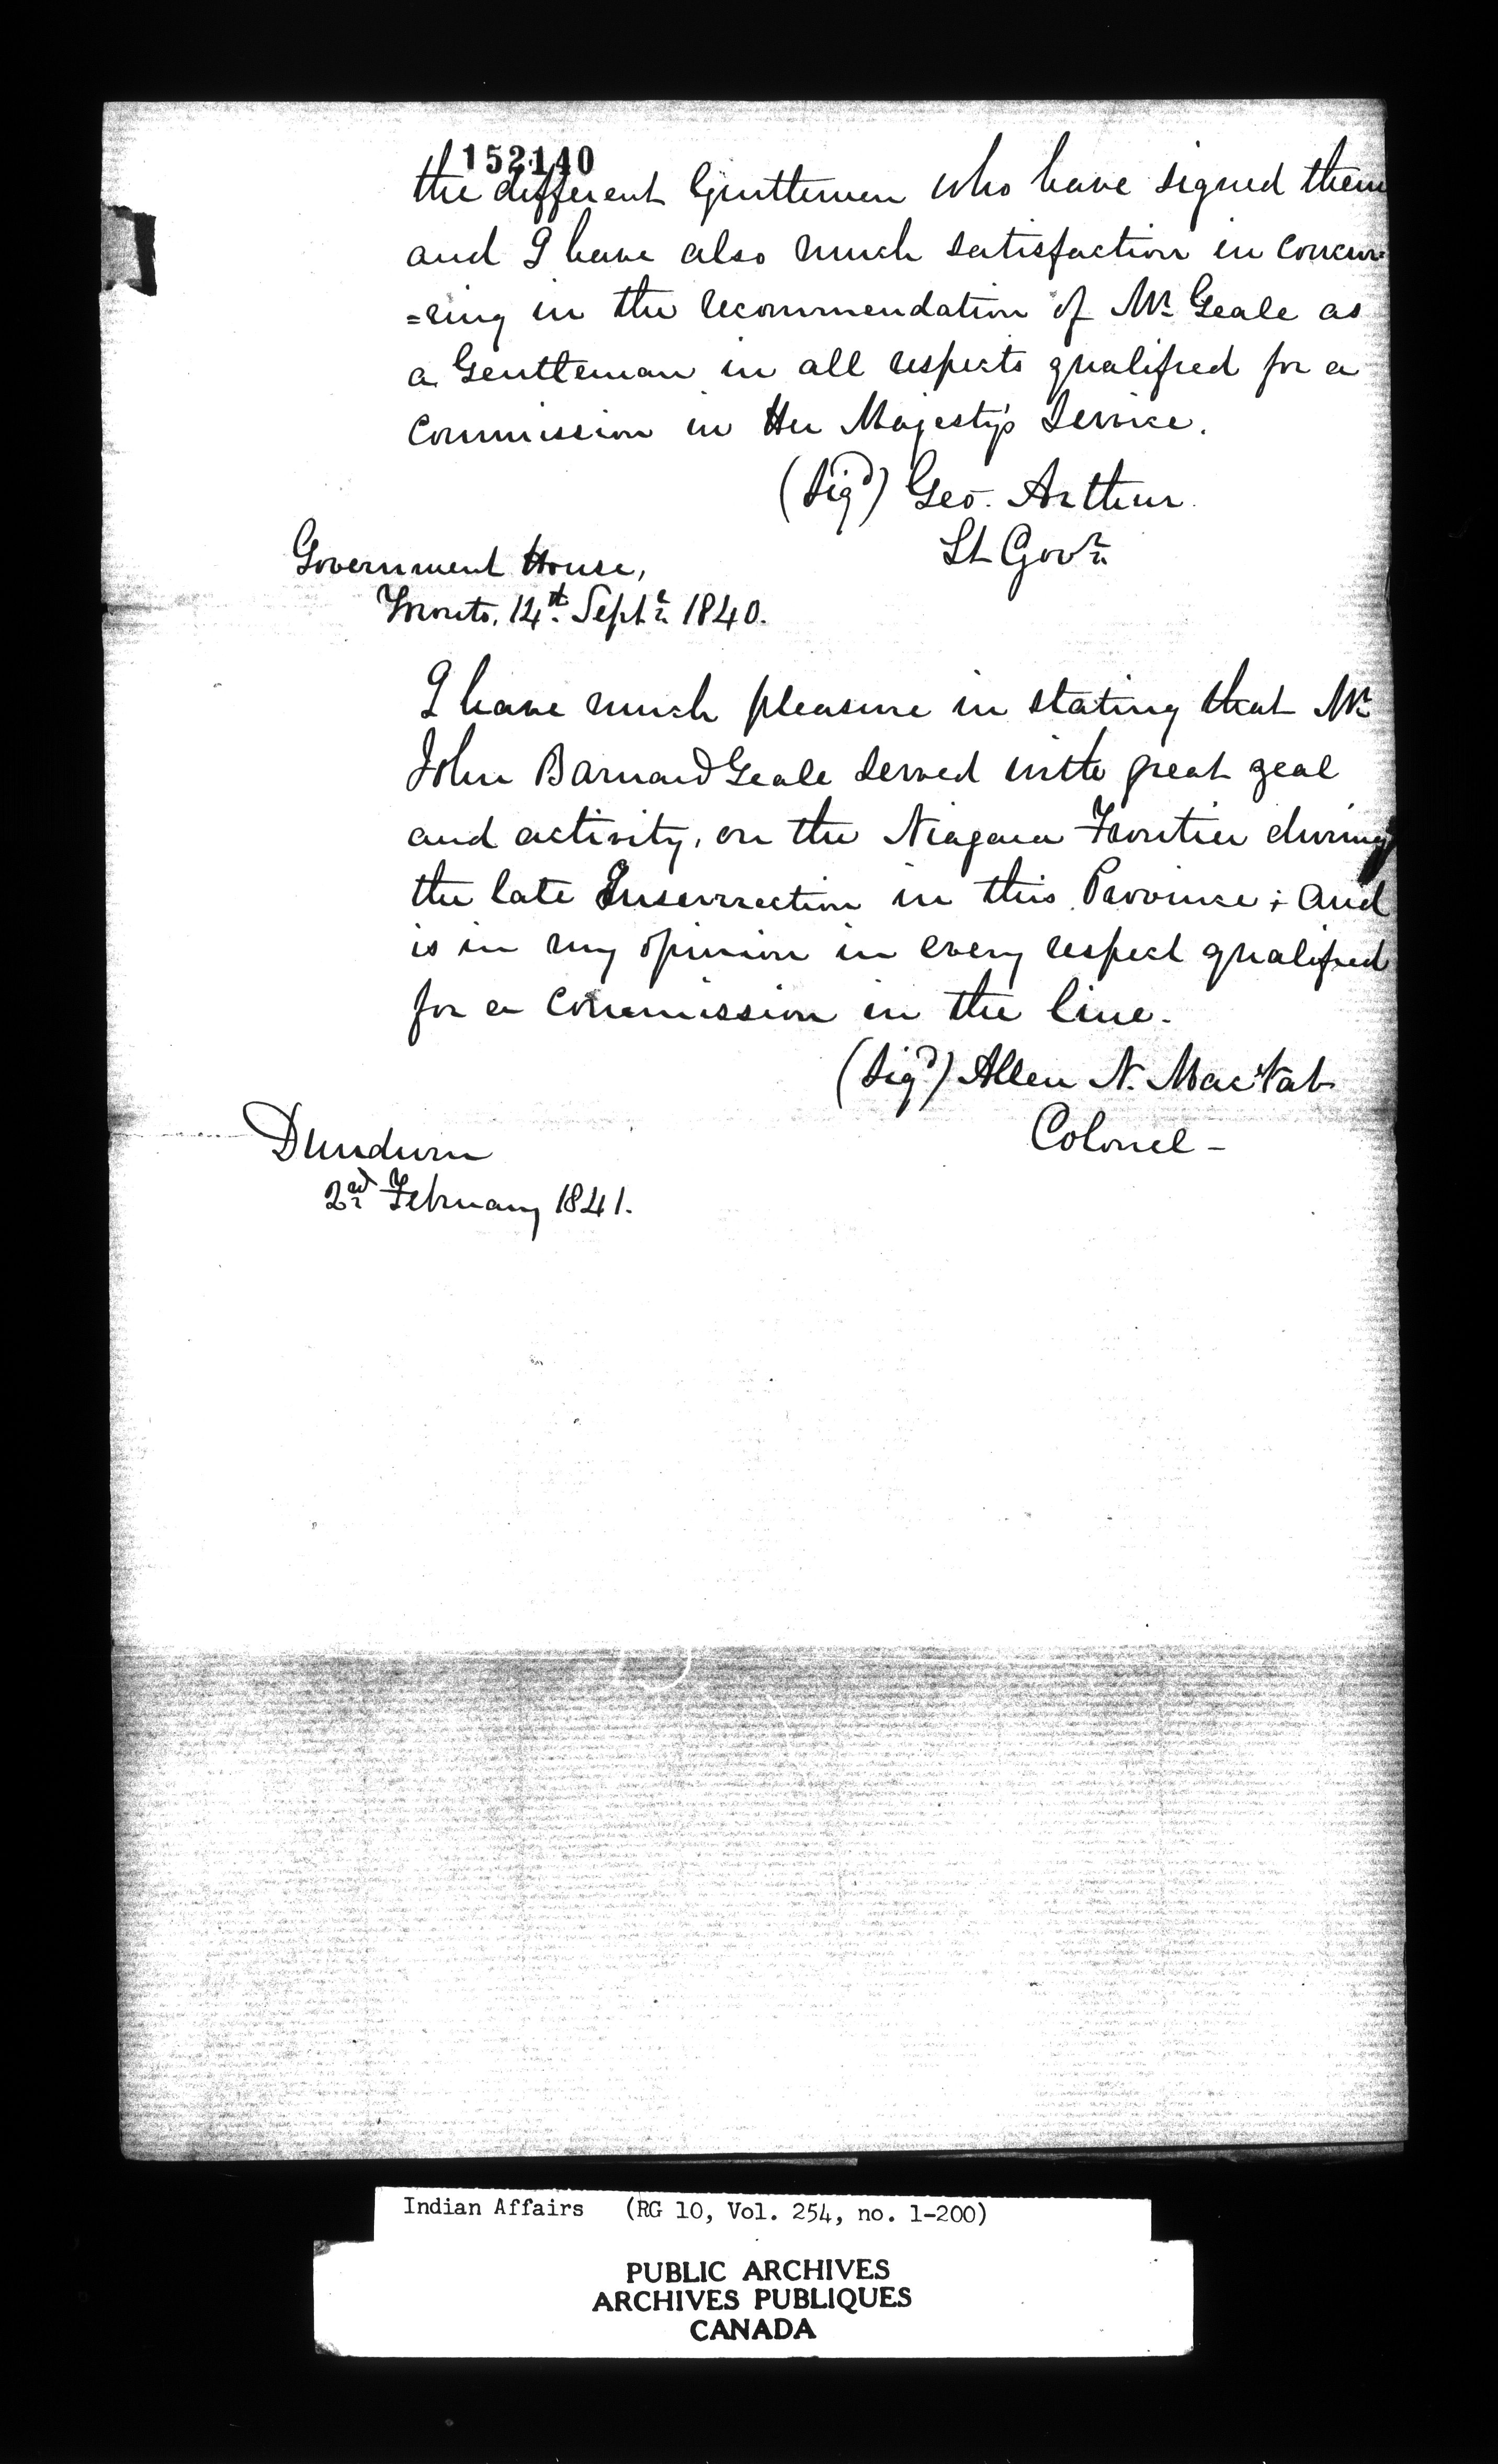 152140
the different Gentlemen who have signed them
and I have also much satisfaction in concur=
=ring in the recommendation of Mr Geale as
a Gentleman in all respects qualified for a
Commission in Her Majesty's Service.
(Sigd) Geo. Arthur.
Lt Govr
Government House,
Toronto, 14th. Septr 1840.
I have much pleasure in stating that Mr
John Barnard Geale served with great zeal
and activity, on the Niagara Frontier during
the late Insurrection in this Province; and
is in my opinion in every respect qualified
for a Commission in the line.
(Sigd) Allen N. MacNab
Colonel -
Dundurn
2nd February 1841.
Indian Affairs (RG 10, Vol. 254, no. 1-200)
PUBLIC ARCHIVES
ARCHIVES PUBLIQUES
CANADA